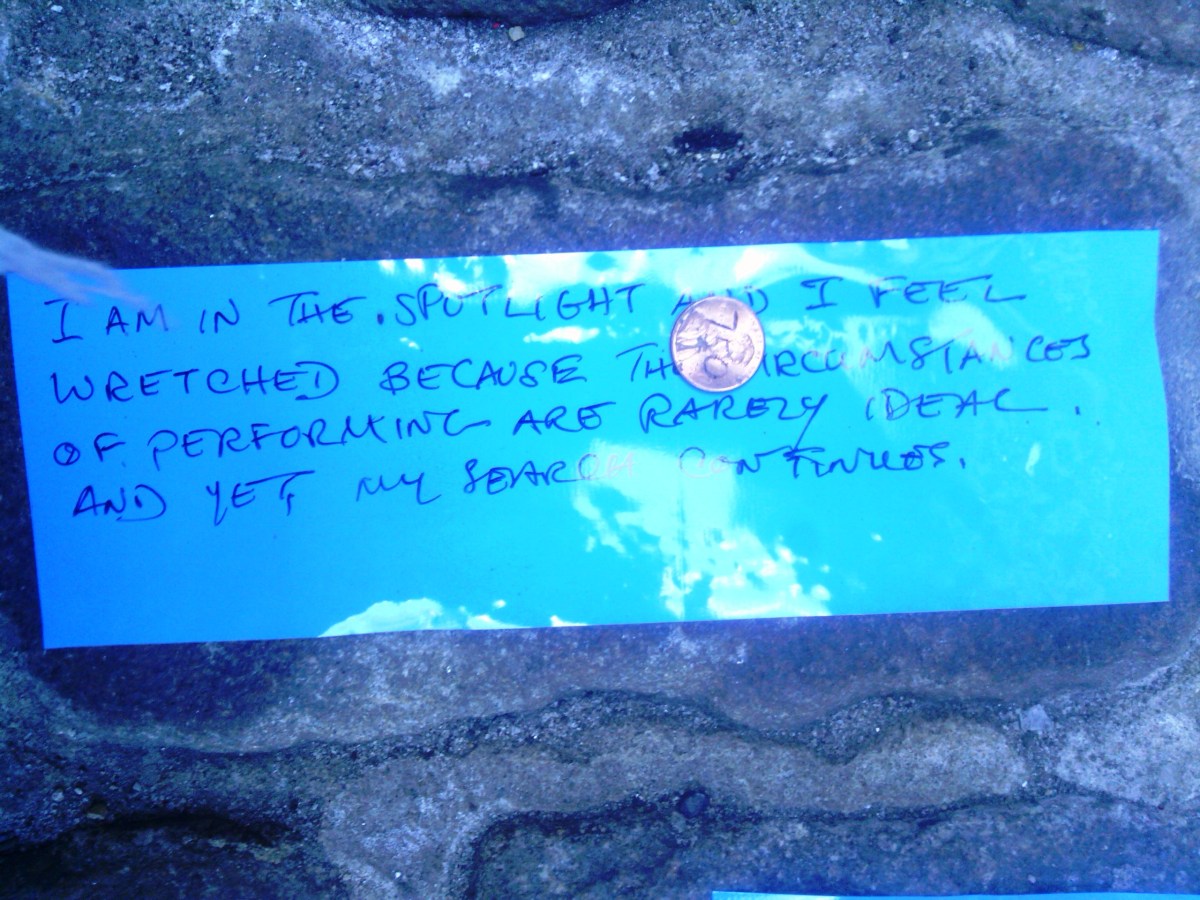 I AM IN THE SPOTLIGHT AND I FEEL
WRETCHED BECAUSE THE CIRCUMSTANCES
OF PERFORMING ARE RARELY IDEAL.
AND YET, MY SEARCH CONTINUES.